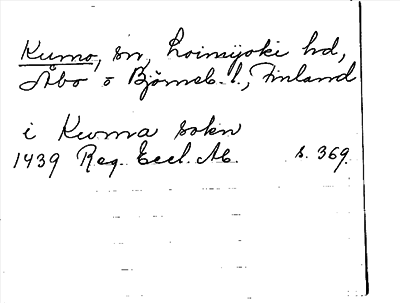 Kumo, sn, Loimijoki hd,
Åbo o Björneb. l., Finland
i Kwma sokn
1439 Reg. Eccl. Ab. s. 369.